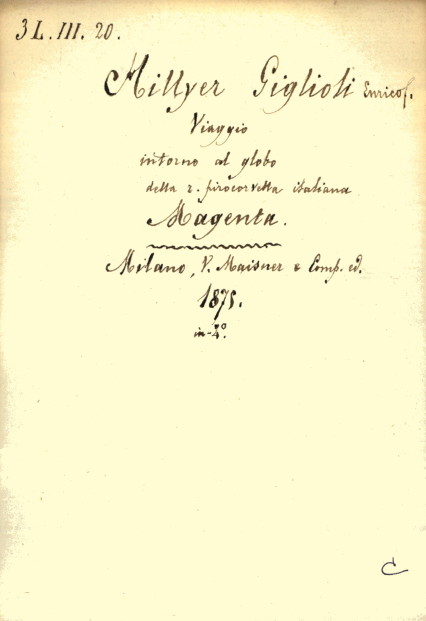 3 L. III. 20.
Hillyer Giglioli Enrico f.
Viaggio
intorno al globo
della r. pirocorvetta italiana
Magenta.
Milano, V. Maisner e Comp. ed.
1875.
in-4º.
C